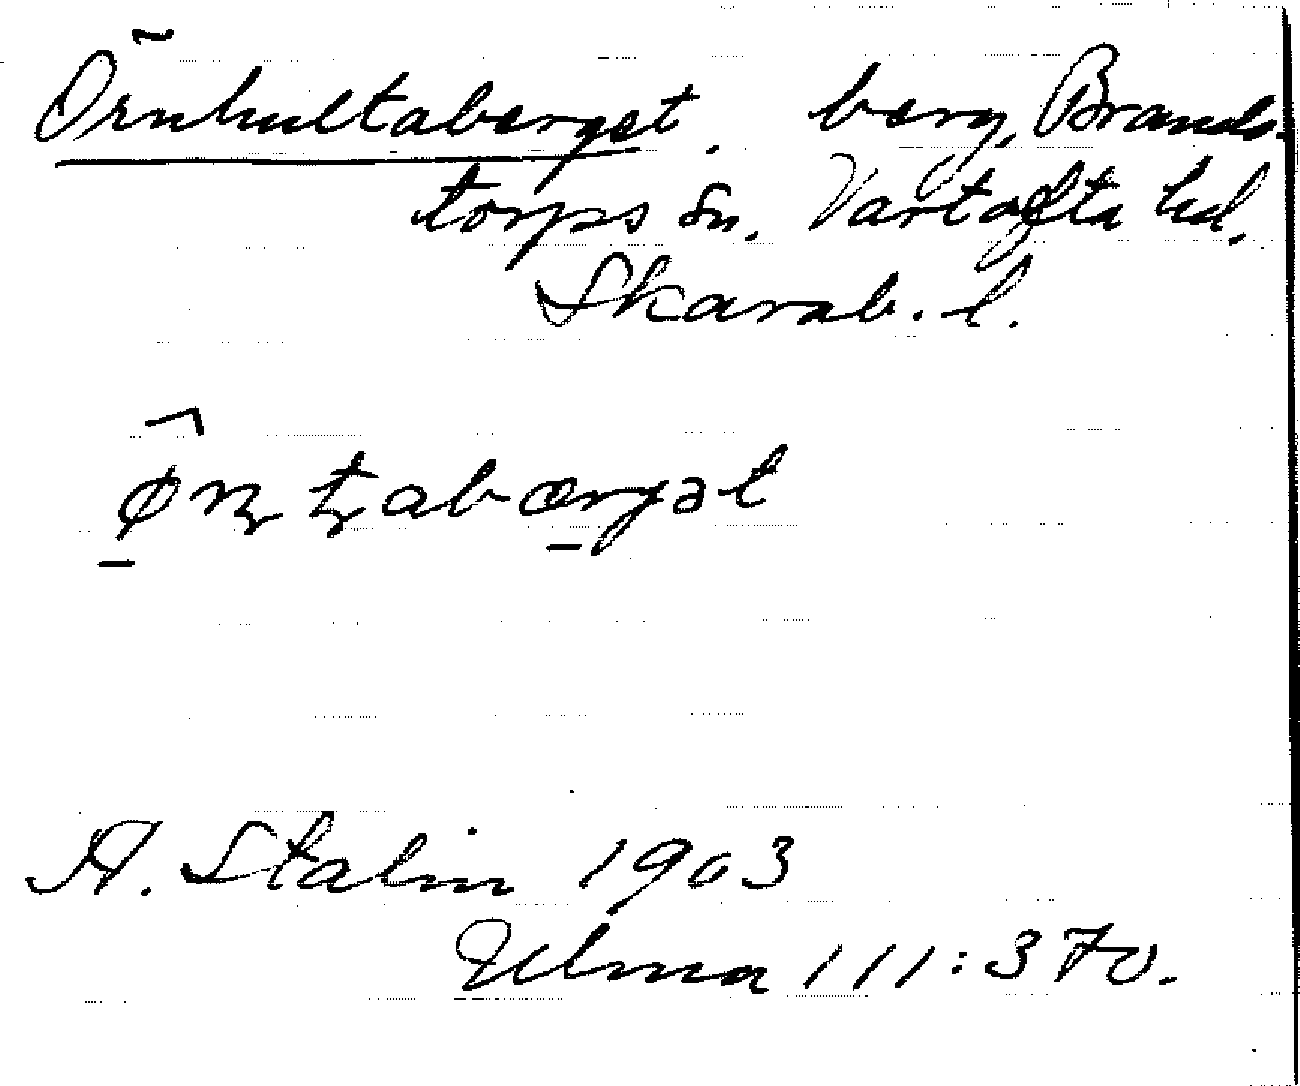 Örnhultaberget. berg, Brands-
torps sn. Vartofta hd.
Skarab. l.
A. Stalin 1903
Ulma 111:370.